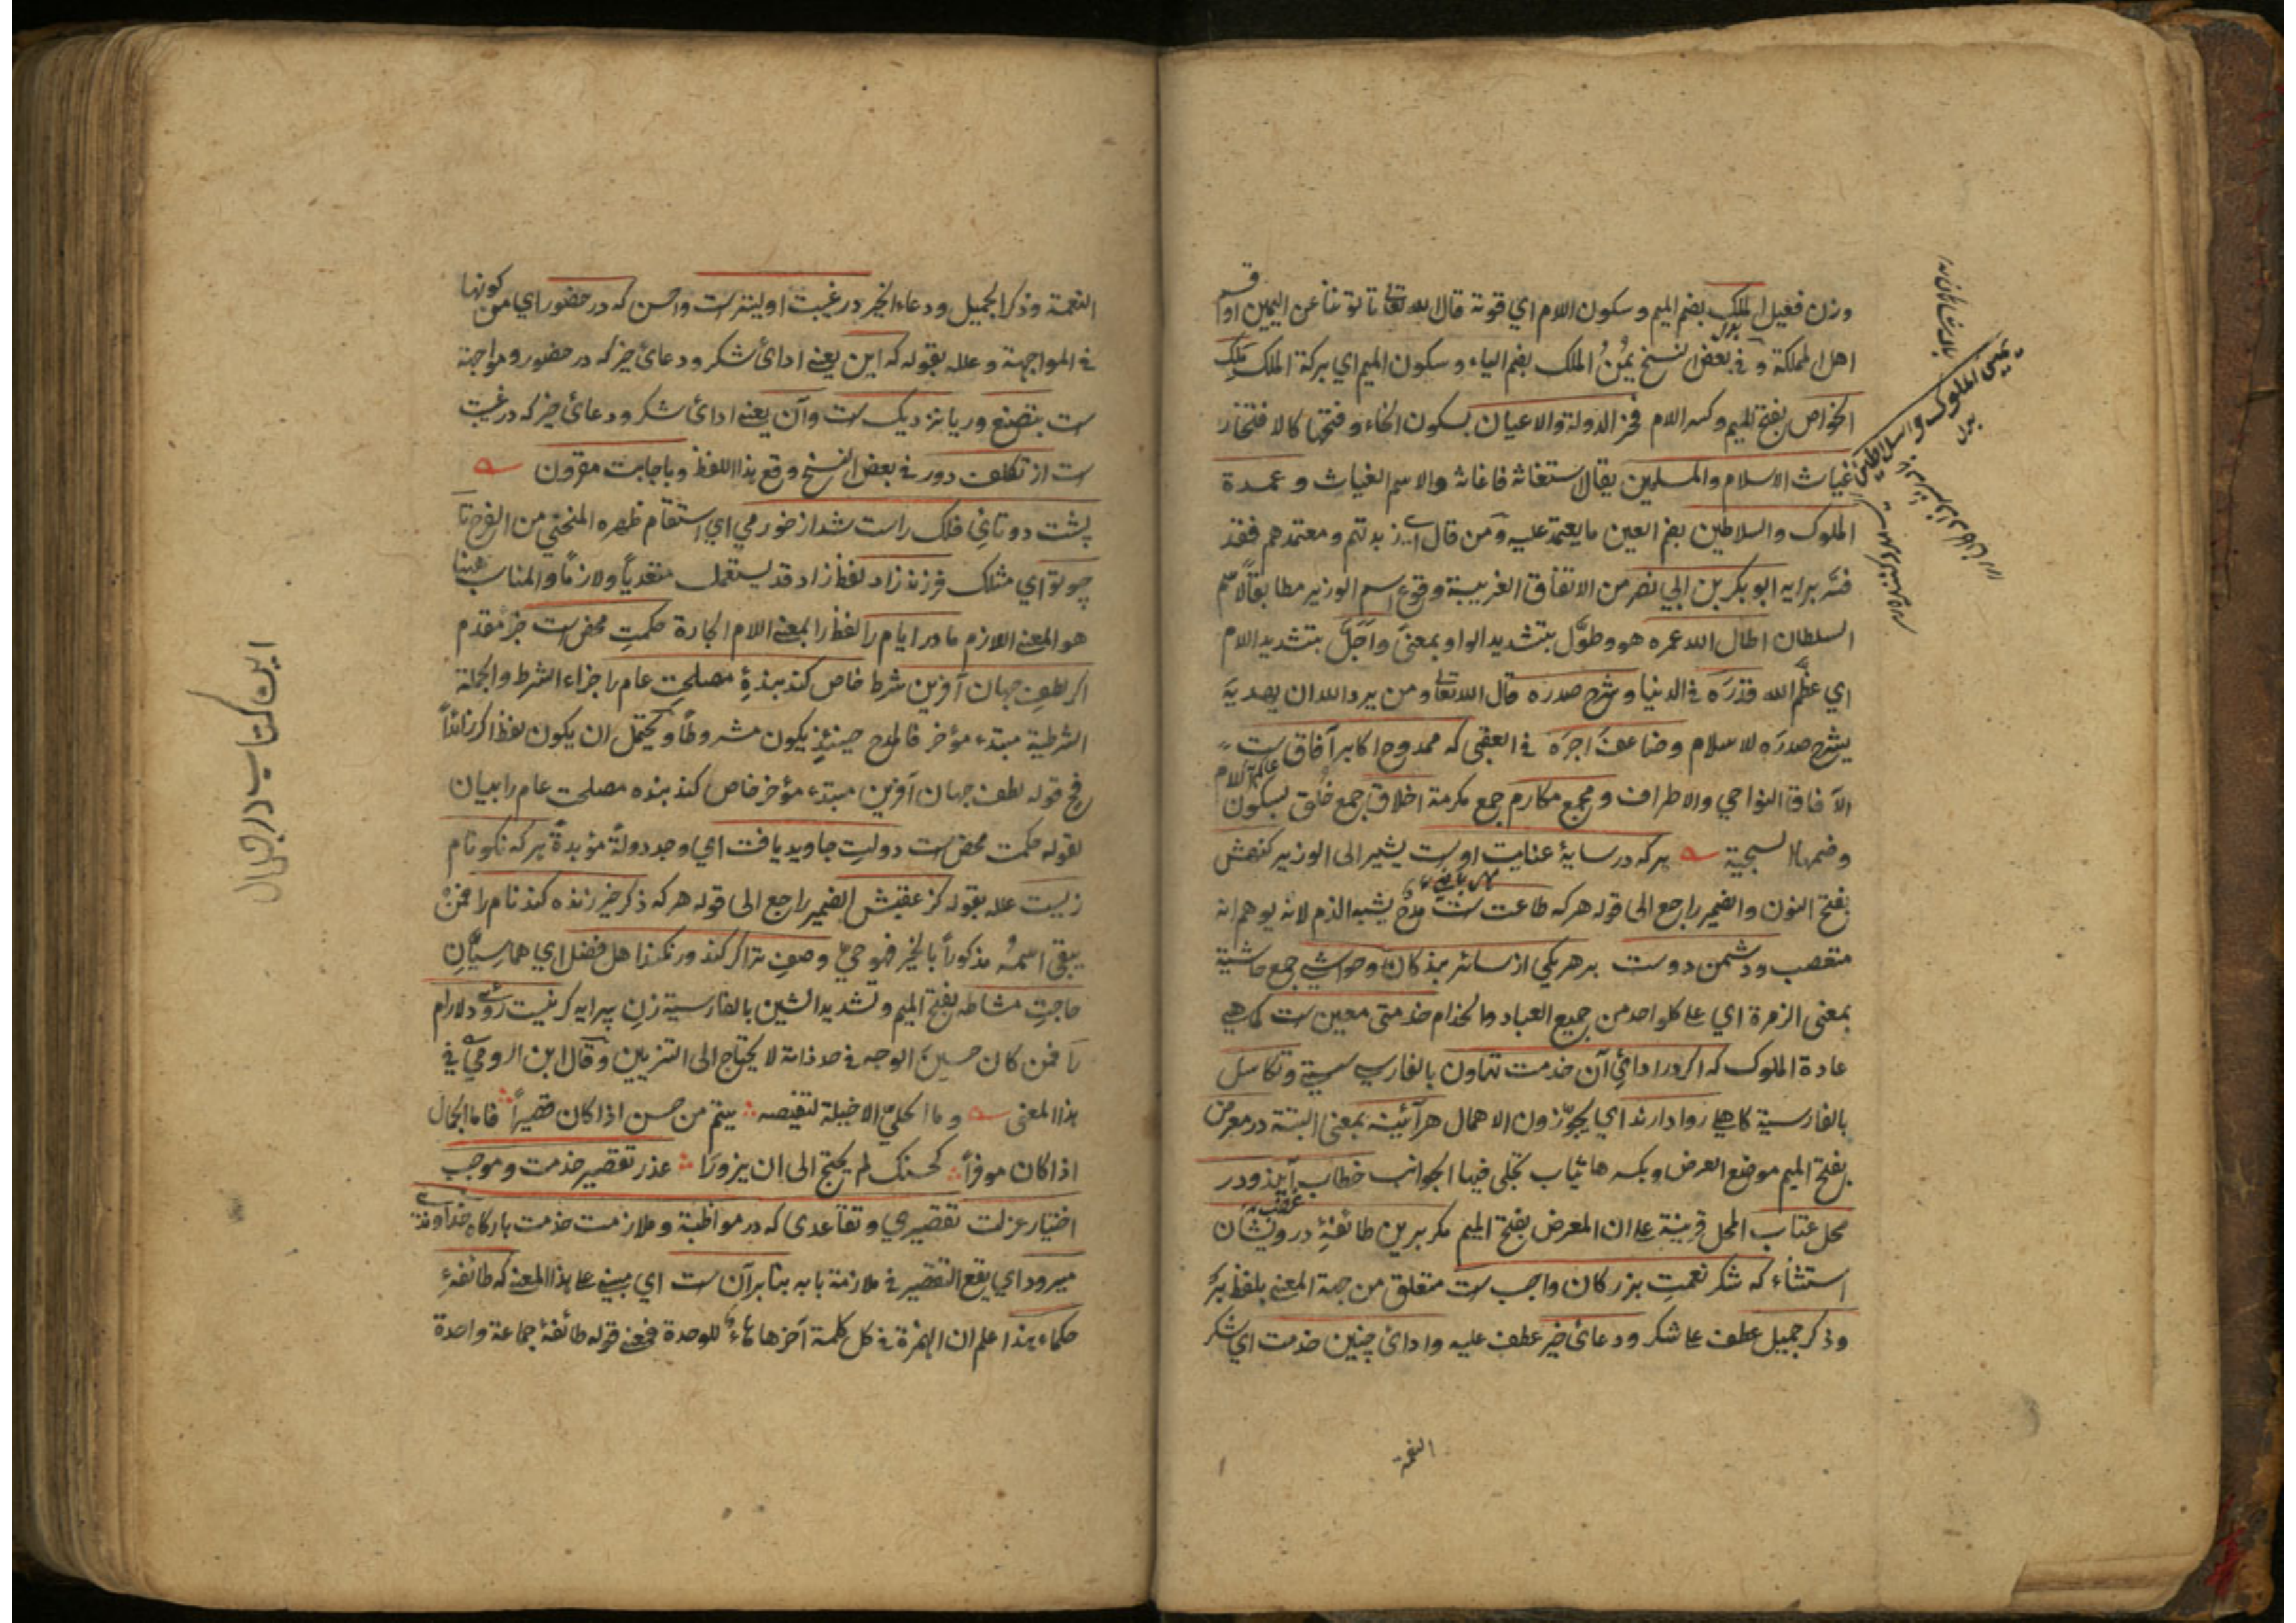 وزن فعيل الملك بضم الميم وسكون اللام اي قوته قال الله تعالى تأتوننا عن اليمين او
اهل المملكة و في بعض النسخ يمُنُ الملك بضم الياء وسكون الميم اي بركة الملك مَلِك
الخواص بفتح الميم وكسر اللام فخر الدولة والاعيان بسكون الخاء وفتحها كالافتخار
غياث الاسلام والمسلمين يقال استغاثه فاغاثه والاسم الغياث و عمدة
الملوك والسلاطين بضم العين ما يعتمد عليه ومن قال اي زبدتهم و معتمدهم فقد
فسّر برايه ابو بكر بن ابي نصر من الاتفاق الغريبة وقوع اسم الوزير مطابقاً لاسم
السلطان اطال الله عمره هو وطوّل بتشديد الواو بمعنىً واَجَلَّ بتشديد اللام
اي عظّم الله قدرَه في الدنيا وشرح صدره قال الله تعالى ومن يرد الله ان يهديَه
يشرح صدرَه للاسلام وضاعفَ اجرَه في العقبى كه ممدوح اكابر آفاق ست
الآفاق النواحي والاطراف و مجمع مكارم جمع مكرمة اخلاق جمع خُلق بسكون اللام
وضمها السجية هركه در سايۀ عنايت اوست يشير الى الوزير كنهش
بفتح النون والضمير راجع الى قوله هركه طاعت ست مدحٌ يشبه الذم لانه يوهم انه
متعصب و دشمن دوست بر هر يكى از سائر بندكان وحواشي جمع حاشية
بمعنى الزمرة اي على كل واحد من جميع العباد والخدام خدمتى معين ست كما هي
عادة الملوك كه اكر در ادائ آن خدمت تهاون بالفارسية سستي و تكاسل
بالفارسية كاهلي روا دارند اي يجوّزون الاهمال هر آئينه بمعنى البتة در معرض
بفتح الميم موضع العرض وبكسرها ثياب تجلى فيها الجوانب خطاب آيند ودر
محل عتاب المحل قرينة على ان المعرض بفتح الميم مكر برين طائفۀ درويشان
استثناء كه شكر نعمتِ بزركان واجب ست متعلق من جهة المعنى بلفظ بر
وذكر جميل عطف على شكر ودعائ خير عطف عليه وادائ چنين خدمت اي شكر
النعمة
النعمة وذكر الجميل ودعاء الخير در غيبت اوليترست واحسن كه در حضور اي من كونها
في المواجهة و علله بقوله كه اين يعنى ادائ شكر ودعائ خير كه در حضور و مواجهة
ست بتصنع و ريا نزديك ست وآن يعنى ادائ شكر ودعائ خير كه در غيبت
ست از تكلف دور في بعض النسخ وقع هذا اللفظ وباجابت مقرون
پشت دوتائي فلك راست شد از خورمي اي استقام ظهره المنحني من الفرح تا
چو تو اي مثلك فرزند زاد لفظ زاد قد يستعمل متعدياً ولازماً والمناسب ههنا
هو المعنى اللازم مادر ايام را لفظ را بمعنى اللام الجارة حكمتِ محض است خبر مقدم
اكر لطف جهان آفرين شرط خاص كند بندۀ مصلحتِ عام را جزاء الشرط والجملة
الشرطية مبتدء مؤخر فالمدح حينئذٍ يكون مشروطاً و يحتمل ان يكون لفظ اكر زائداً
فح قوله لطف جهان آفرين مبتدء مؤخر خاص كند بنده مصلحت عام را بيان
لقوله حكمت محض ست دولتِ جاويد يافت اي وجد دولةً مؤبدةً هركه نكونام
زيست علله بقوله كز عقبش الضمير راجع الى قوله هركه ذكر خير زنده كند نام را فمَن
يبقى اسمُه مذكوراً بالخير فهو حيٌّ وصفِ ترا كر كند ور نكند اهل فضل اي هما سِيَّانِ
حاجتِ مشاطه بفتح الميم وتشديد الشين بالفارسية زنِ پيرايه كر نيست روى دلارام
را فمن كان حسين الوجه في حد ذاته لا يحتاج الى التزيين وقال ابن الرومي في
هذا المعنى وما الحلي الا حيلة لنقيصه يتمم من حسن اذا كان قصيراً فاما الجمال
اذا كان موفراً كحسنك لم يحتج الى ان يزورا عذر تقصير خدمت وموجب
اختيار عزلت تقصيري وتقاعدى كه در مواظبة وملازمت خدمت باركاه خداوندى
ميرود اي يقع التقصير في ملازمة بابه بنابر آن ست اي مبني على هذا المعنى كه طائفۀ
حكماء هذا علم ان الهمزة في كل كلمة آخرها هاء للوحدة فمعنى قوله طائفۀ جماعة واحدة
اين كتاب در جمال